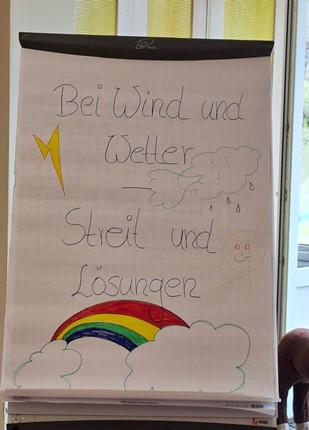 Bei Wind und
Wetter
—
Streit und
Lösungen